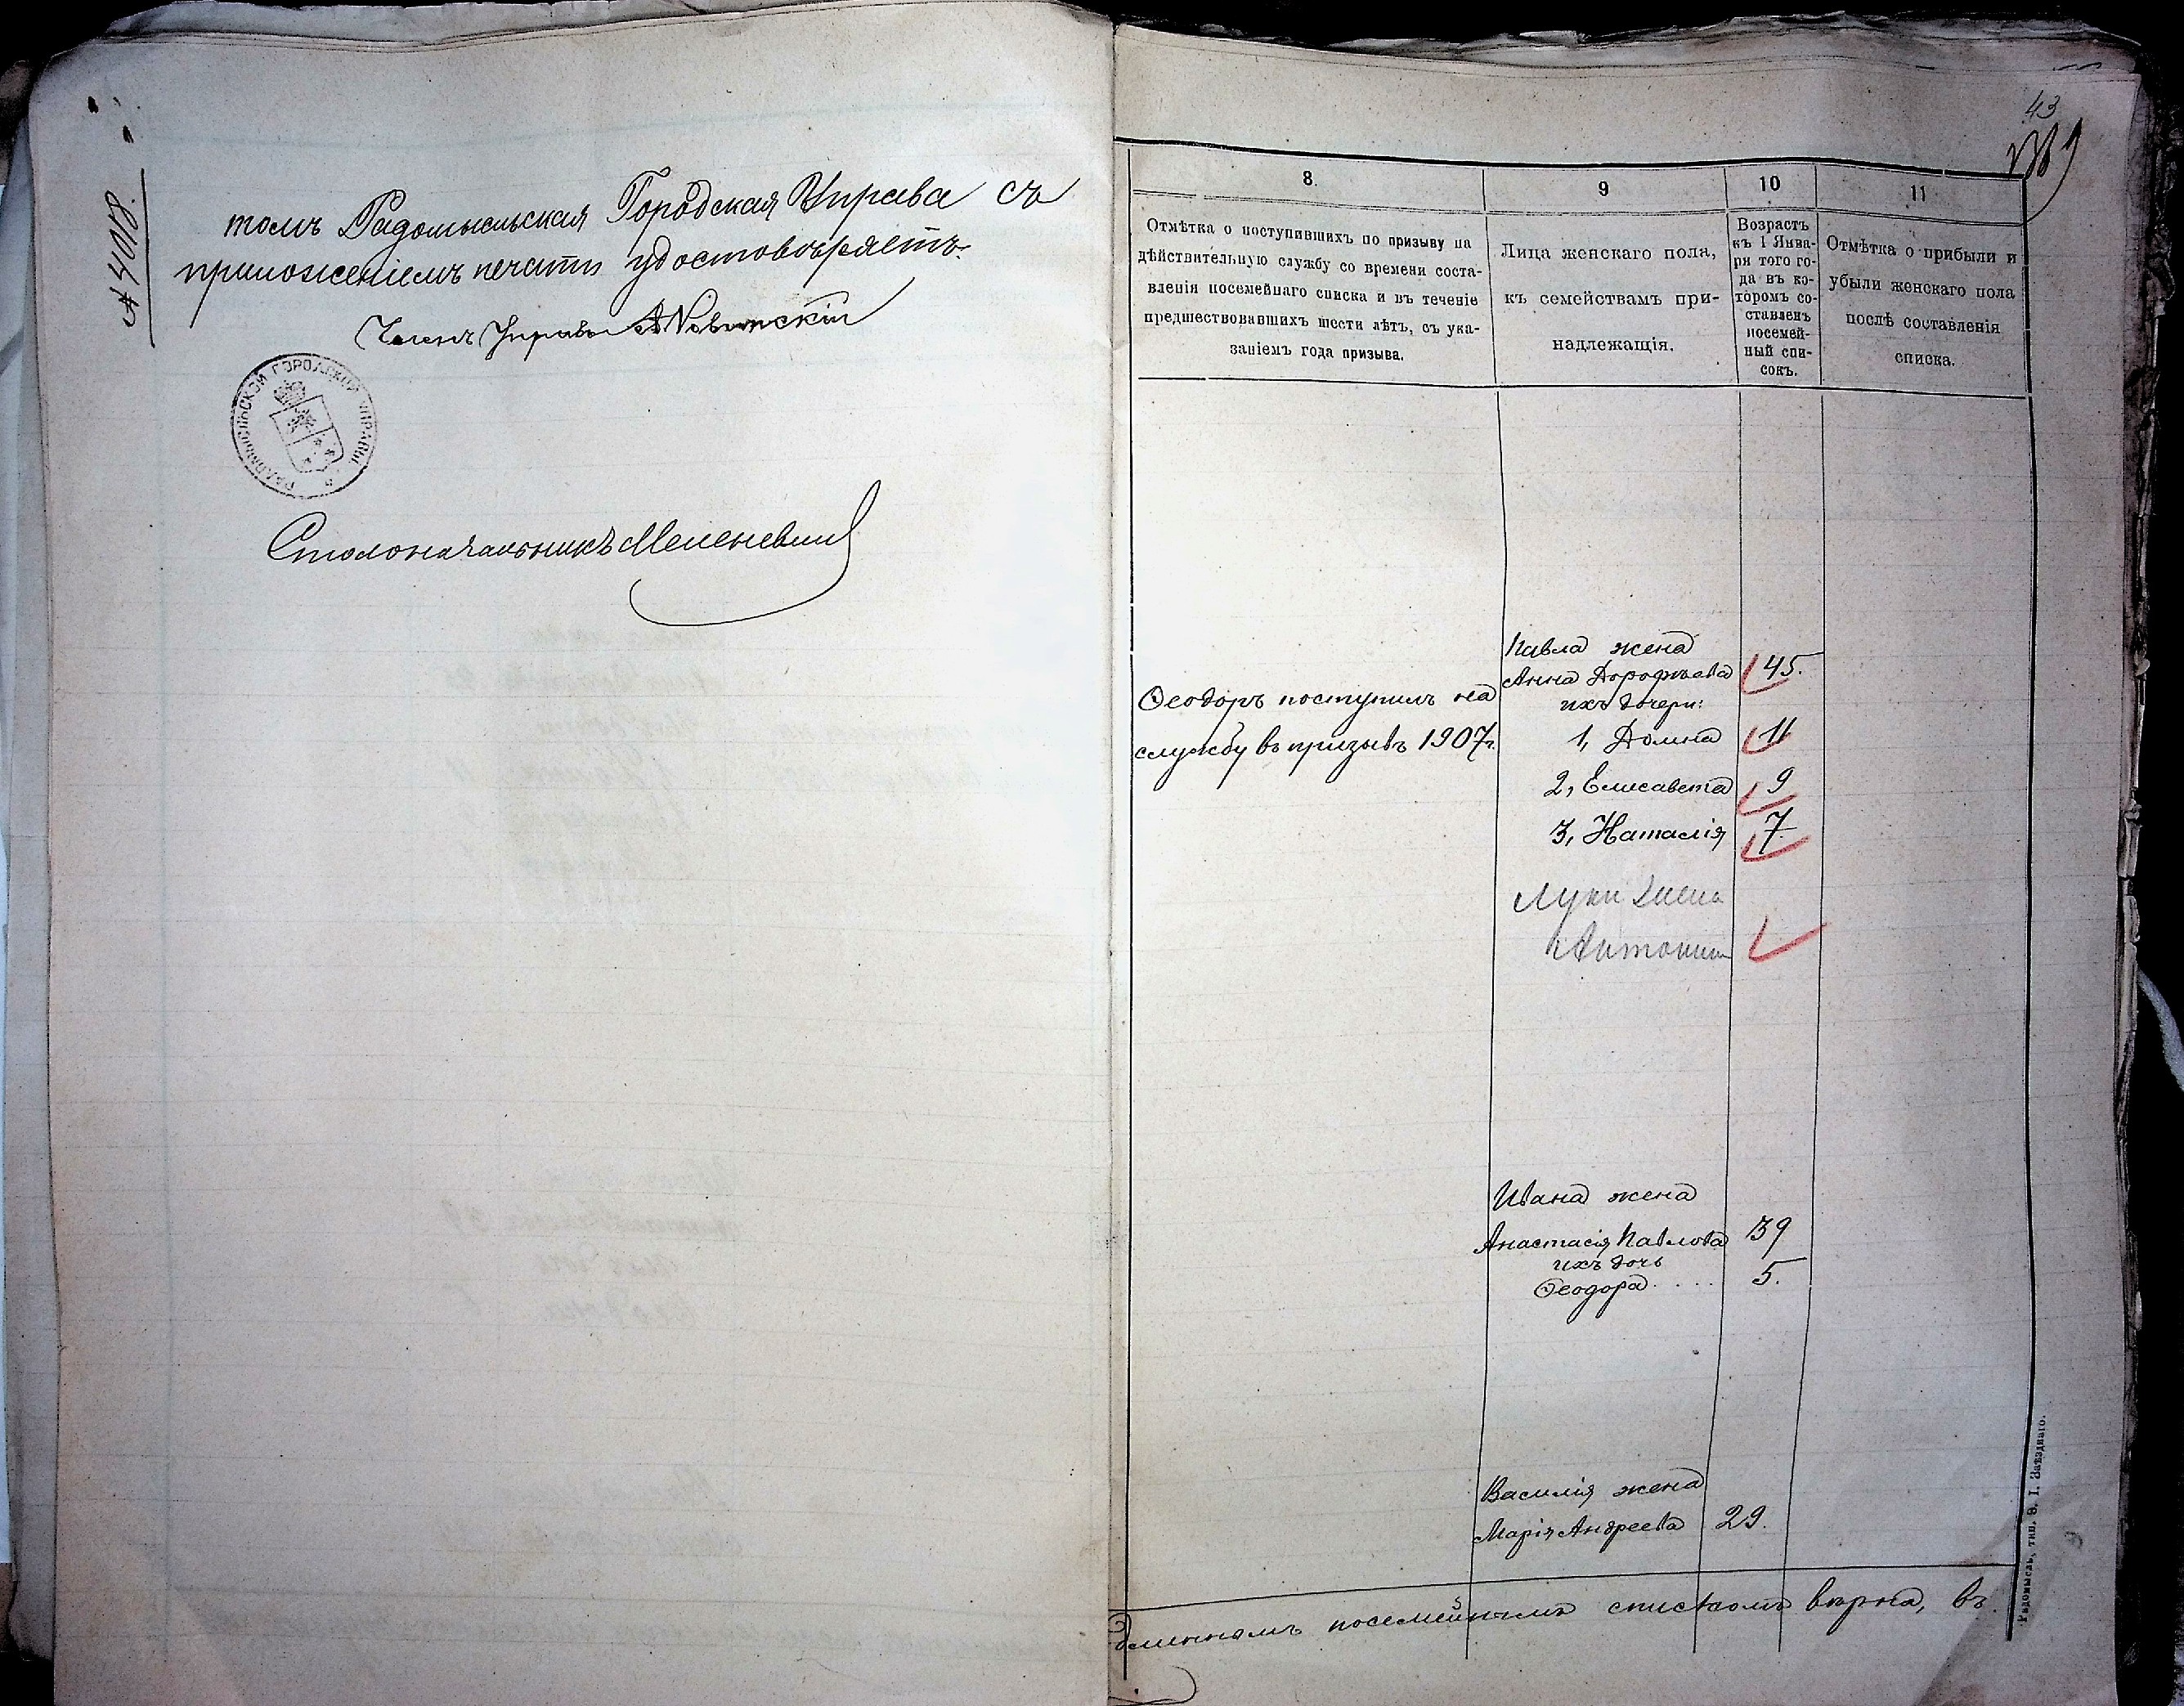 № 4018.
томъ Радомысльская Городская Управа съ
приложеніемъ печати удостовѣряетъ.
Членъ Управы
РАДОМЫСЛЬСКОЙ ГОРОДСКОЙ УПРАВЫ
Столоначальникъ
43
8.
Отмѣтка о поступившихъ по призыву на
дѣйствительную службу со времени соста-
вленія посемейнаго списка и въ теченіе
предшествовавшихъ шести лѣтъ, съ ука-
заніемъ года призыва.
9
Лица женскаго пола,
къ семействамъ при-
надлежащія.
10
Возрастъ
къ 1 Янва-
ря того го-
да въ ко-
торомъ со-
ставленъ
посемей-
ный спи-
сокъ.
11
Отмѣтка о прибыли и
убыли женскаго пола
послѣ составленія
списка.
Ѳеодоръ поступилъ на
службу въ призывъ 1907 г.
Павла жена
Анна Дорофѣева 45.
ихъ дочери:
1, Домна 11
2, Елисавета 9
3, Наталія 7
Луки жена
Антонина
Ивана жена
Анастасія Павлова 39
ихъ дочь
Ѳеодора 5.
Василія жена
Марія Андреева 29.
длиннымъ посемейнымъ спискомъ вѣрна, въ
Радомысль, тип. Ѳ. І. Заѣзднаго.